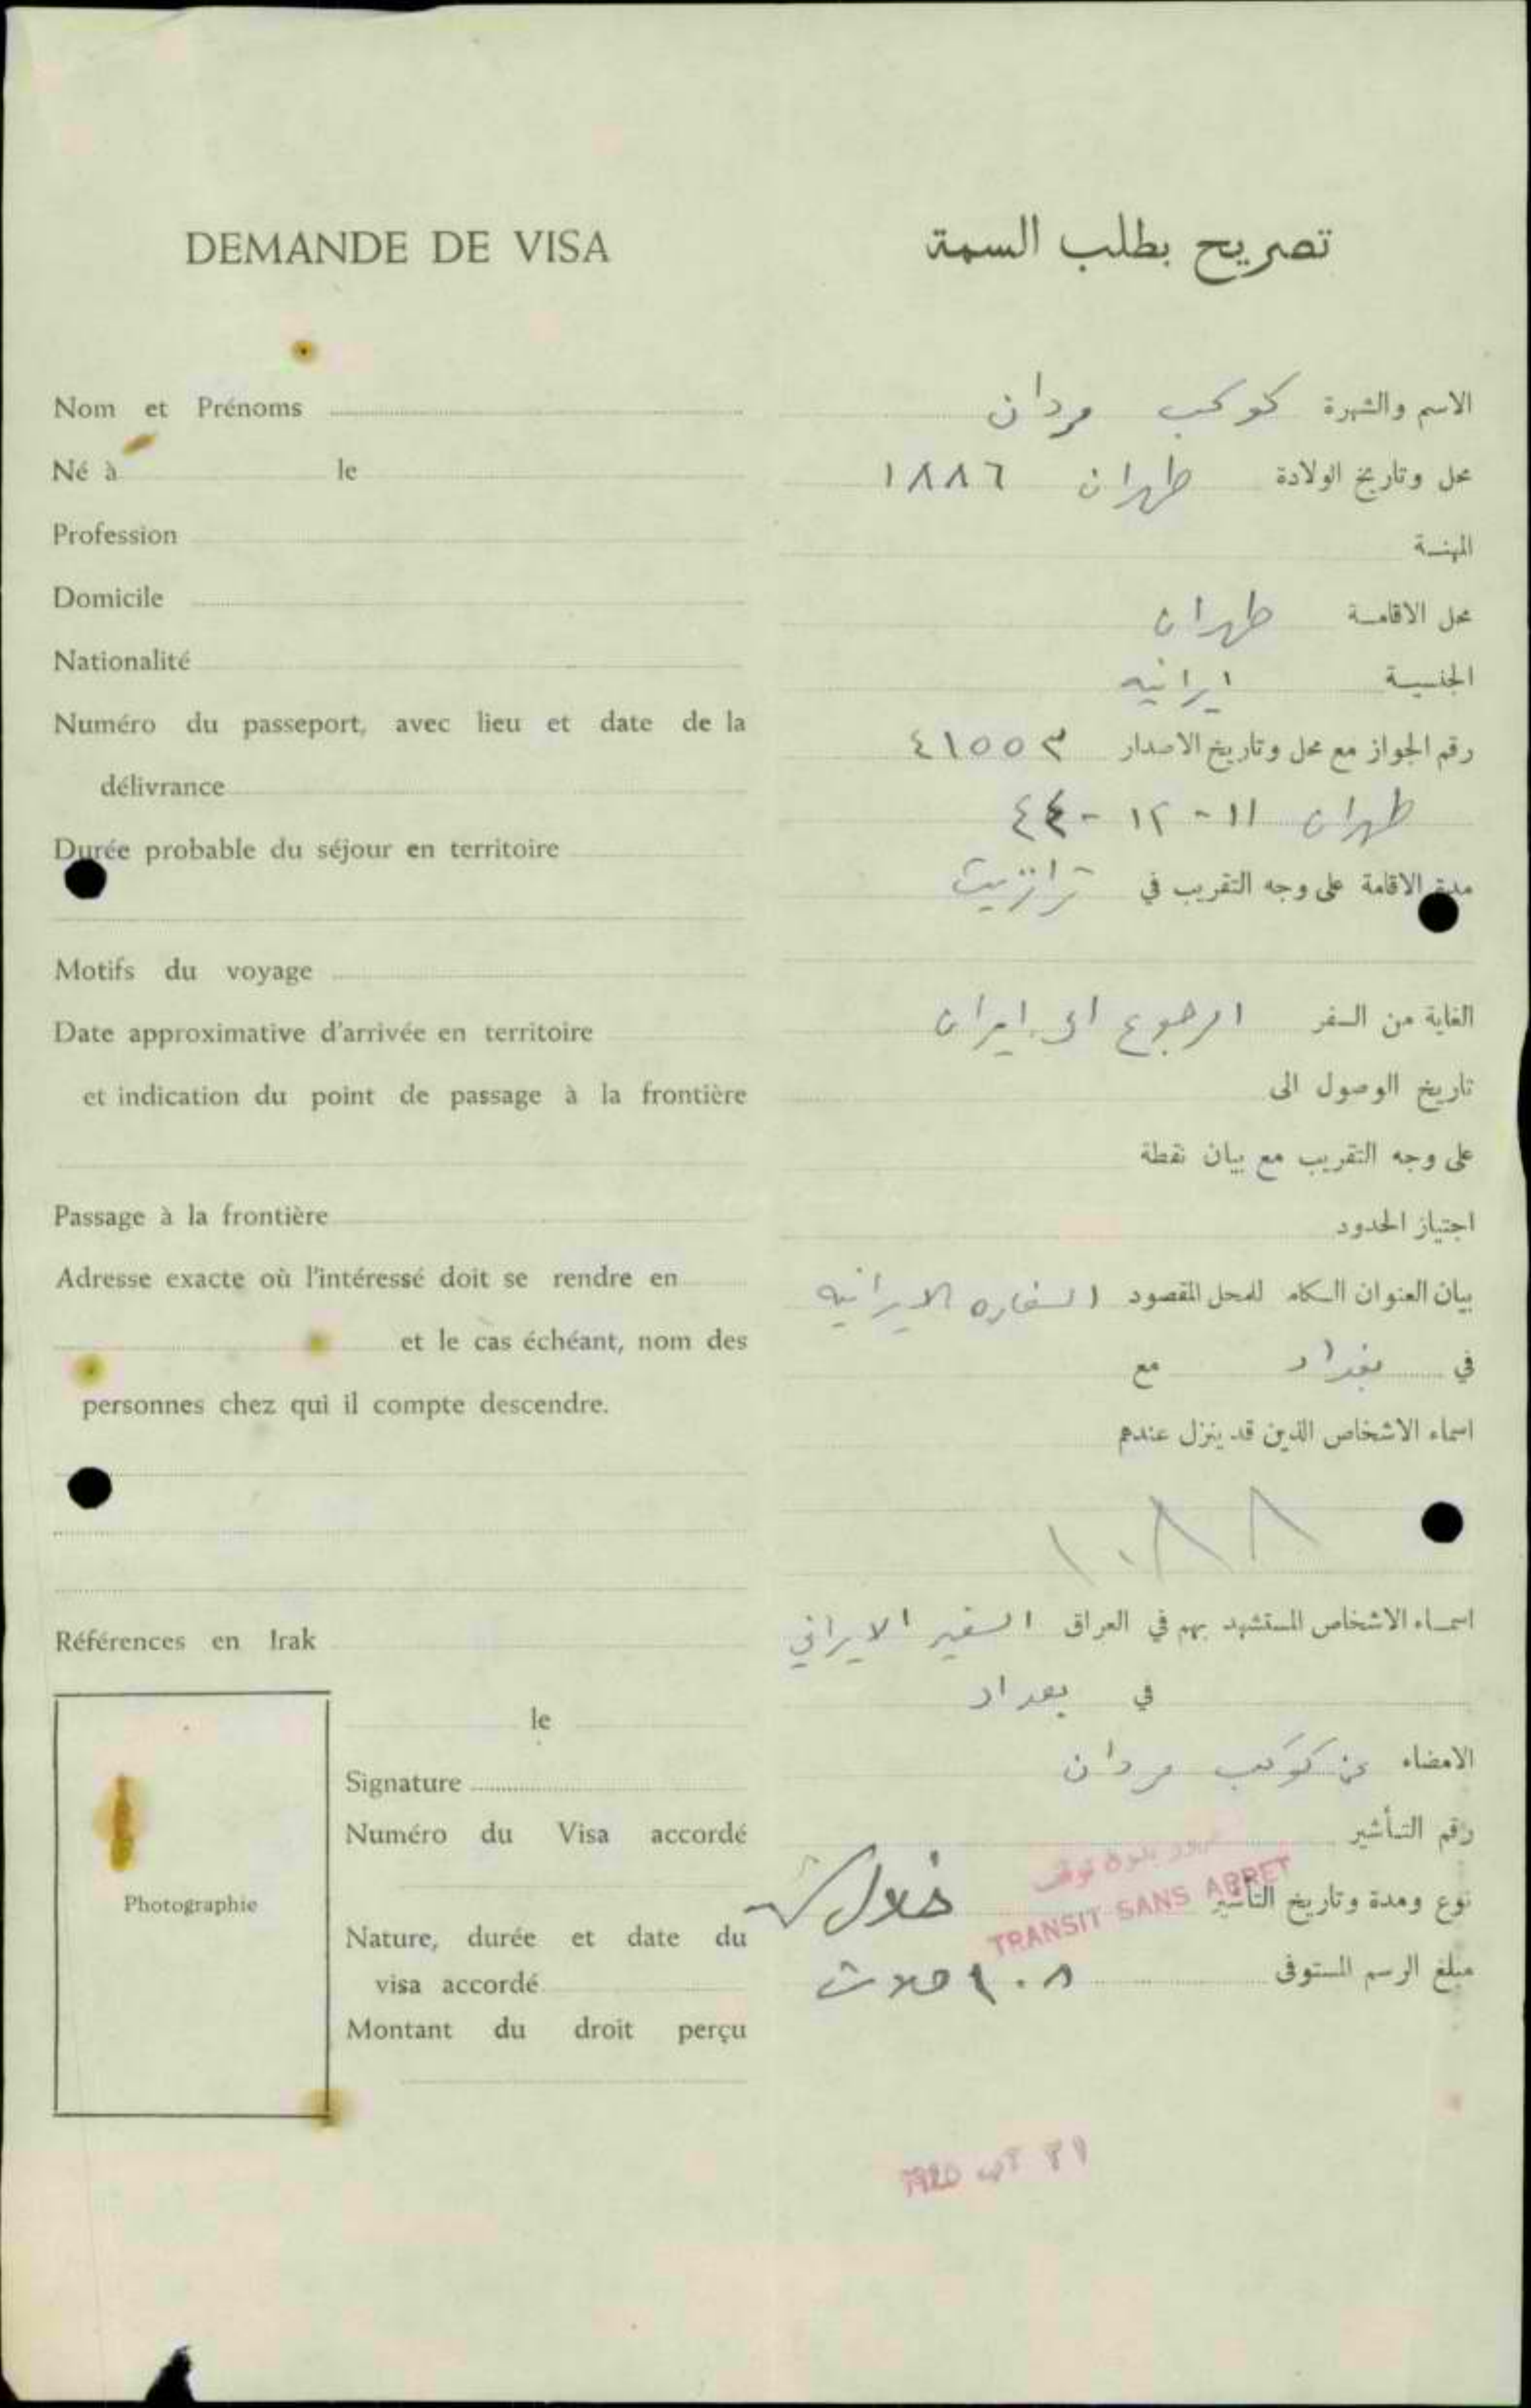 DEMANDE DE VISA
Nom et Prénoms
Né à le
Profession
Domicile
Nationalité
Numéro du passeport, avec lieu et date de la
délivrance
Durée probable du séjour en territoire
Motifs du voyage
Date approximative d'arrivée en territoire
et indication du point de passage à la frontière
Passage à la frontière
Adresse exacte où l'intéressé doit se rendre en
et le cas échéant, nom des
personnes chez qui il compte descendre.
Références en Irak
le
Signature
Numéro du Visa accordé
Photographie
Nature, durée et date du
visa accordé
Montant du droit perçu
تصريح بطلب السمة
الاسم والشهرة كوكب مردان
محل وتاريخ الولادة طهران ١٨٨٦
المهنـة
محل الاقامـة طهران
الجنسيـة ايرانيه
رقم الجواز مع محل وتاريخ الاصدار ٤١٥٥٣
طهران ١١ - ١٢ - ٤٤
مدة الاقامة على وجه التقريب في ترانزيت
الغاية من السفر الرجوع الى ايران
تاريخ الوصول الى
على وجه التقريب مع بيان نقطة
اجتياز الحدود
بيان العنوان الكامل للمحل المقصود السفاره الايرانيه
في بغداد مع
اسماء الاشخاص الذين قد ينزل عندهم
١٠٨٨
اسمـاء الاشخاص المستشهد بهم في العراق السفير الايراني
في بغداد
الامضاء عن كوكب مردان
رقم التـأشير
مرور بدون توقف
TRANSIT SANS ARRET
نوع ومدة وتاريخ التأشير خلال
مبلغ الرسم المستوفى ١٠٨